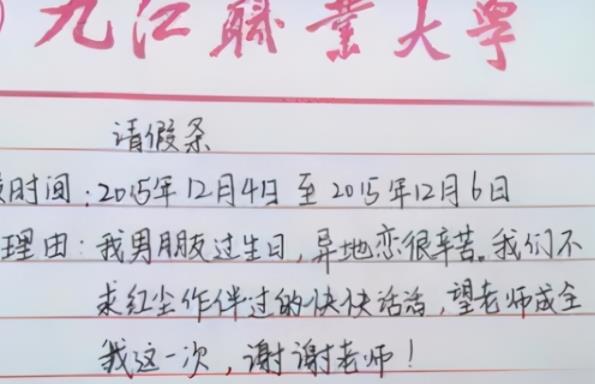 九江職業大学
请假条
假时间：2015年12月4日至2015年12月6日
理由：我男朋友过生日，异地恋很辛苦。我们不
求红尘作伴过的快快活活，望老师成全
我这一次，谢谢老师！